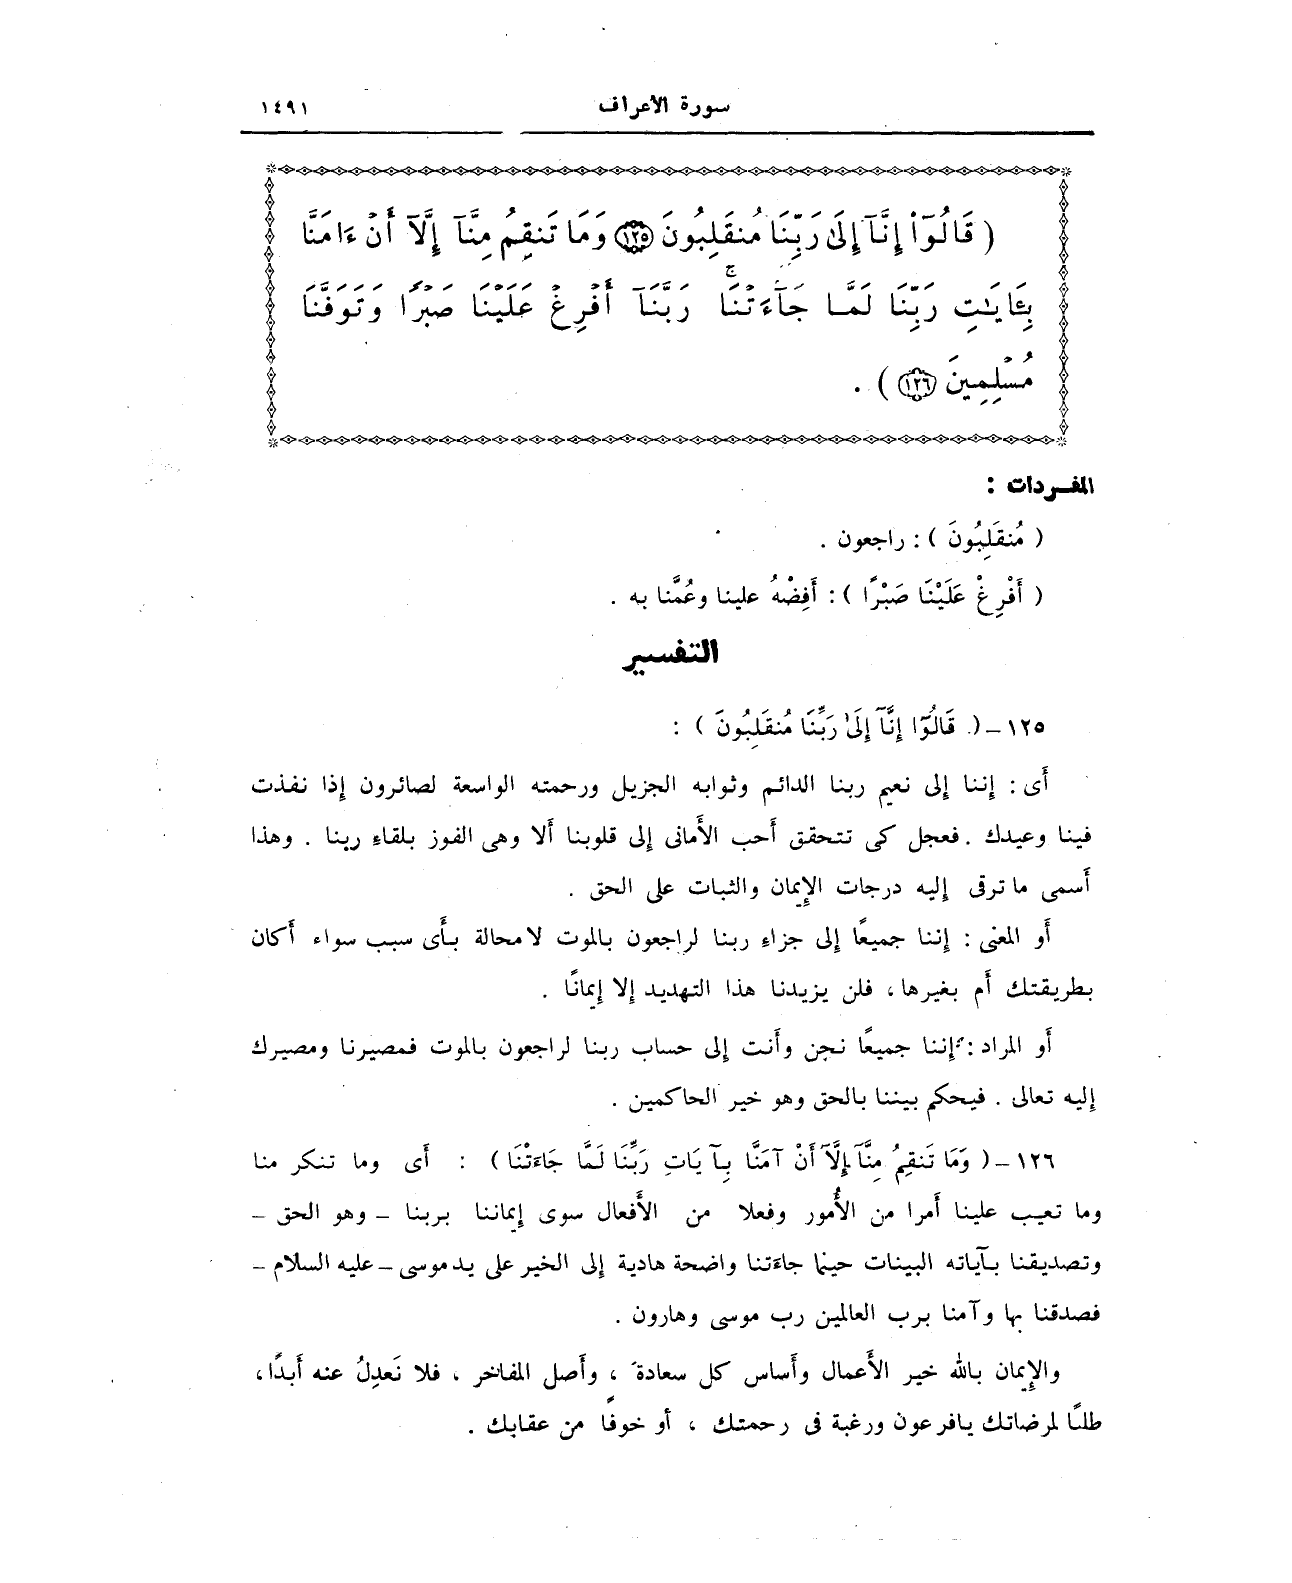 سورة الأعراف ١٤٩١
( قَالُوٓا۟ إِنَّآ إِلَىٰ رَبِّنَا مُنقَلِبُونَ ١٢٥ وَمَا تَنقِمُ مِنَّآ إِلَّآ أَنْ ءَامَنَّا
بِـَٔايَـٰتِ رَبِّنَا لَمَّا جَآءَتْنَا ۚ رَبَّنَآ أَفْرِغْ عَلَيْنَا صَبْرًا وَتَوَفَّنَا
مُسْلِمِينَ ١٢٦ ) .
المفـردات :
( مُنقَلِبُونَ ) : راجعون .
( أَفْرِغْ عَلَيْنَا صَبْرًا ) : أَفِضْهُ علينا وعُمَّنا به .
التفسير
١٢٥ – ( قَالُوٓا إِنَّآ إِلَىٰ رَبِّنَا مُنقَلِبُونَ ) :
أَى : إننا إلى نعيم ربنا الدائم وثوابه الجزيل ورحمته الواسعة لصائرون إذا نفذت
فينا وعيدك . فعجل كى تتحقق أَحب الأَمانى إلى قلوبنا أَلا وهى الفوز بلقاءِ ربنا . وهذا
أَسمى ما ترقى إليه درجات الإيمان والثبات على الحق .
أَو المعنى : إننا جميعًا إلى جزاءِ ربنا لراجعون بالموت لا محالة بأَى سبب سواء أَكان
بطريقتك أَم بغيرها ، فلن يزيدنا هذا التهديد إلا إيمانًا .
أَو المراد : إننا جميعًا نحن وأَنت إلى حساب ربنا لراجعون بالموت فمصيرنا ومصيرك
إليه تعالى . فيحكم بيننا بالحق وهو خير الحاكمين .
١٢٦ – ( وَمَا تَنقِمُ مِنَّآ إِلَّآ أَنْ آمَنَّا بِآيَاتِ رَبِّنَا لَمَّا جَاءَتْنَا ) : أَى وما تنكر منا
وما تعيب علينا أَمرا من الأُمور وفعلا من الأَفعال سوى إيماننا بربنا – وهو الحق –
وتصديقنا بآياته البينات حينما جاءَتنا واضحة هادية إلى الخير على يد موسى – عليه السلام –
فصدقنا بها وآمنا برب العالمين رب موسى وهارون .
والإيمان بالله خير الأَعمال وأَساس كل سعادة ، وأَصل المفاخر ، فلا نَعدِلُ عنه أَبدًا ،
طلبًا لمرضاتك يافرعون ورغبة فى رحمتك ، أو خوفًا من عقابك .